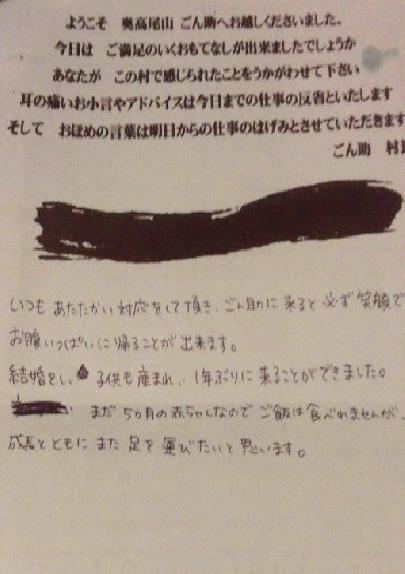 ようこそ 奥高尾山 ごん助へお越しくださいました。
今日は ご満足のいくおもてなしが出来ましたでしょうか
あなたが この村で感じられたことをうかがわせて下さい
耳の痛いお小言やアドバイスは今日までの仕事の反省といたします
そして おほめの言葉は明日からの仕事のはげみとさせていただきます
ごん助 村長
いつも あたたかい対応をして頂き、ごん助に来ると必ず笑顔で
お腹いっぱいに帰ることが出来ます。
結婚をし、子供も産まれ、1年ぶりに来ることができました。
まだ 5ヵ月の赤ちゃんなので ご飯は食べれませんが、
成長とともに また 足を 運びたいと思います。